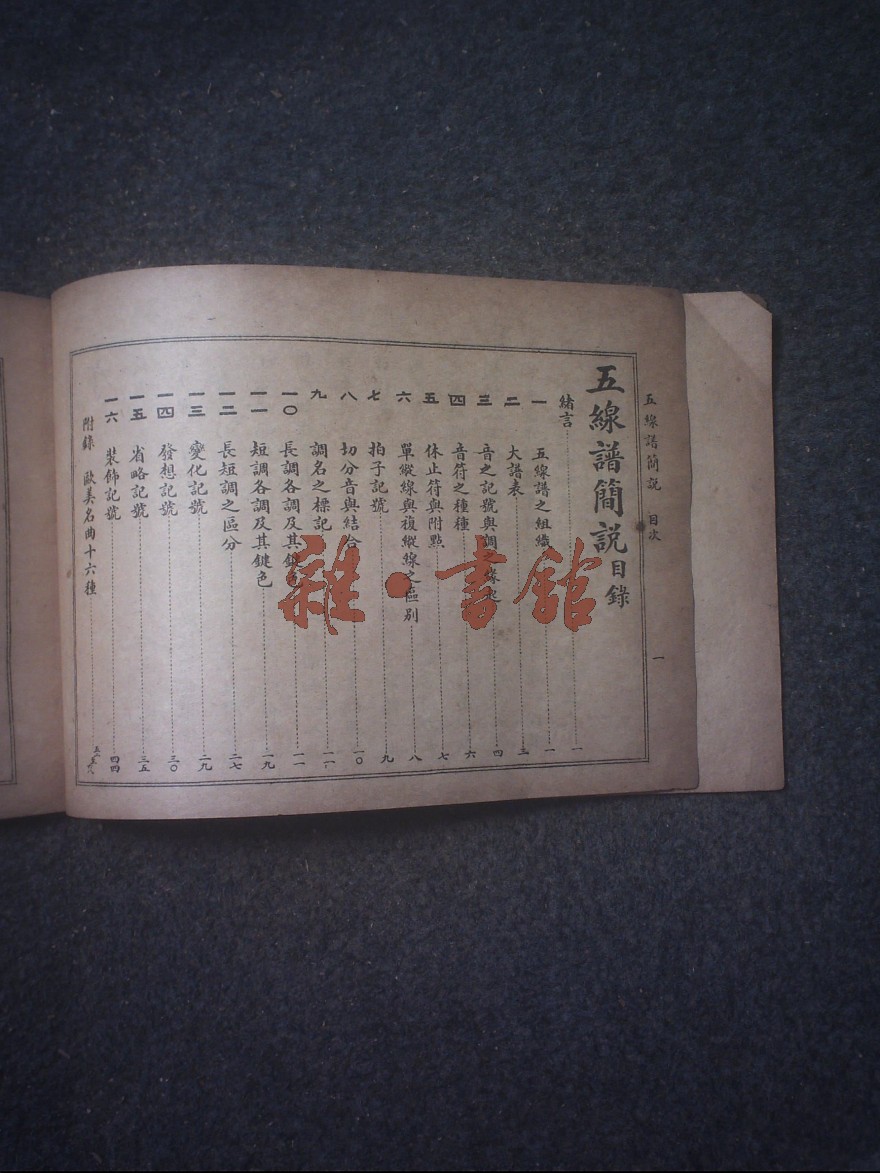 五線譜簡説 目次 一
五線譜簡説目錄
緒言 一
一 五線譜之組織 一
二 大譜表 三
三 音之記號與調之緣起 四
四 音符之種種 六
五 休止符與附點 七
六 單縱線與複縱線之區别 八
七 拍子記號 九
八 切分音與結合 一〇
九 調名之標記 一一
一〇 長調各調及其鍵色 一一
一一 短調各調及其鍵色 一九
一二 長短調之區分 二七
一三 變化記號 二九
一四 發想記號 三〇
一五 省略記號 三五
一六 裝飾記號 四四
附錄 歐美名曲十六種
雜·書館